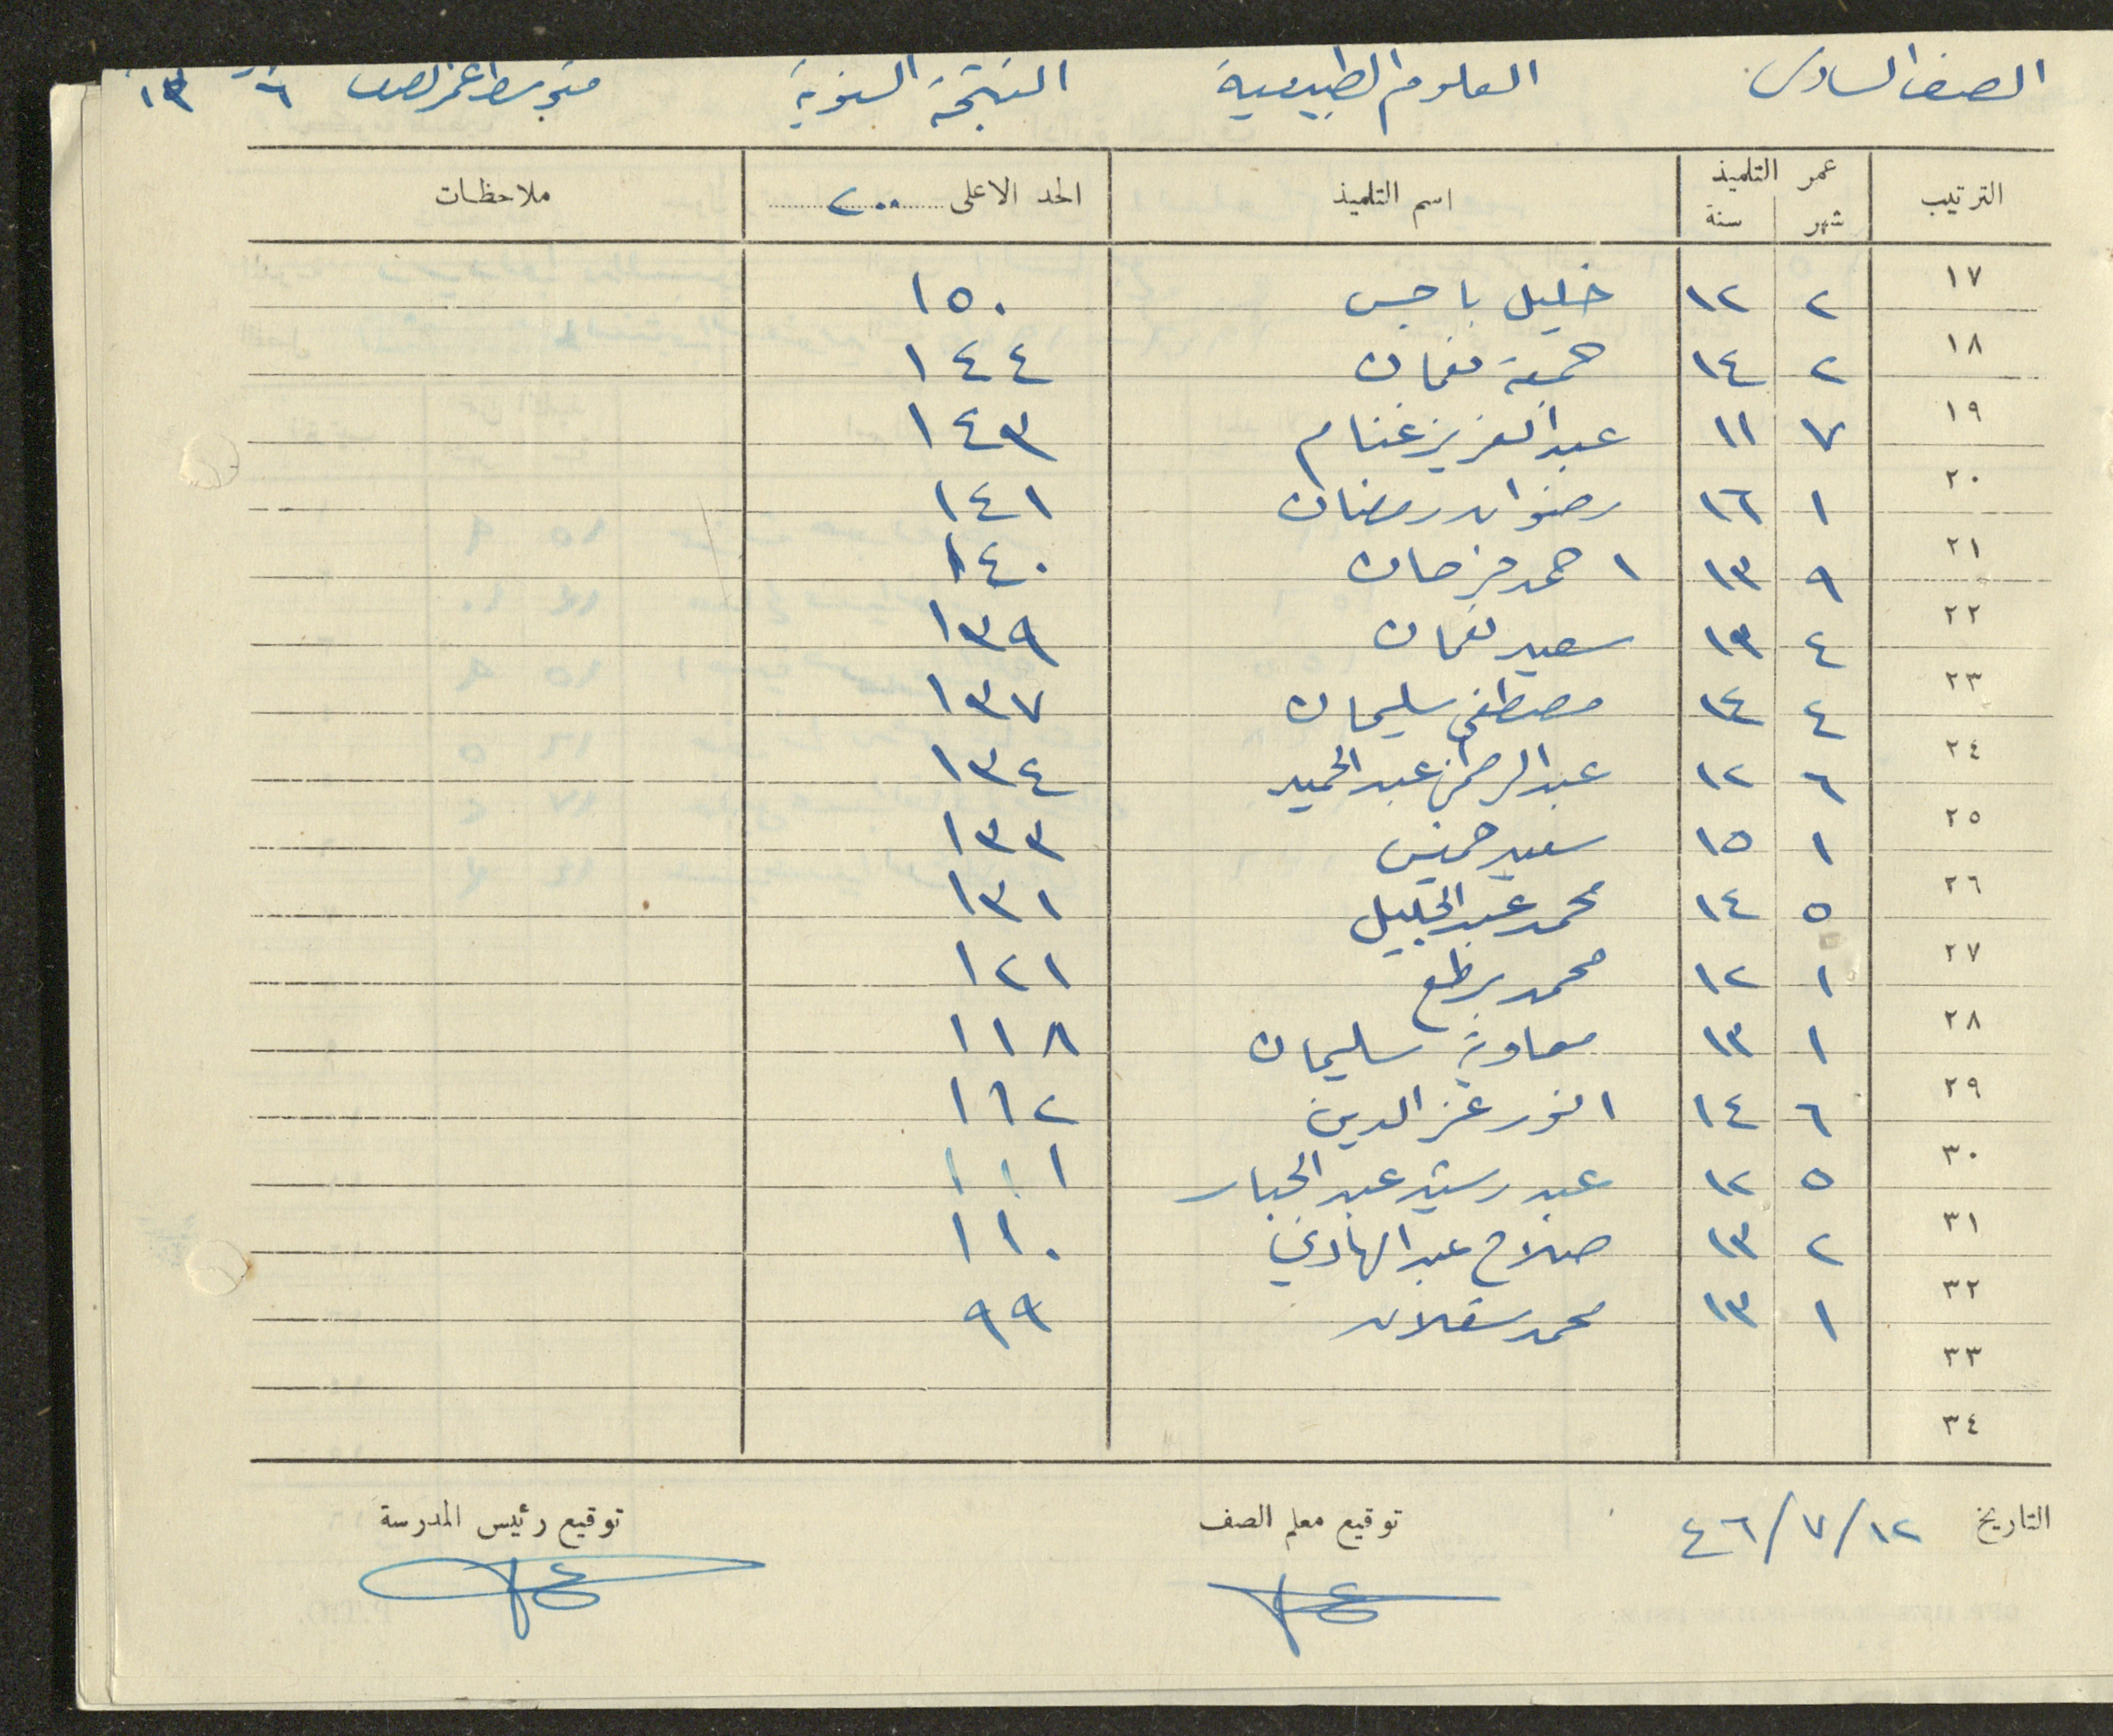 الصف السادس العلوم الطبيعية النتيجة السنوية متوسط عمر الصف ٦ ١٣
الترتيب عمر التلميذ اسم التلميذ الحد الاعلى ٢٠٠ ملاحظات
شهر سنة
١٧ ٢ ١٢ خليل باجس ١٥٠
١٨ ٢ ١٤ جمعة نعمان ١٤٤
١٩ ٧ ١١ عبد العزيز غنام ١٤٣
٢٠ ١ ١٦ رضوان رمضان ١٤١
٢١ ٩ ١٣ احمد فرحان ١٤٠
٢٢ ٤ ١٣ سعيد نعمان ١٣٩
٢٣ ٤ ١٤ مصطفى سليمان ١٣٧
٢٤ ٦ ١٢ عبد الرحمن عبد الحميد ١٣٤
٢٥ ١ ١٥ سعيد خميس ١٣٣
٢٦ ٥ ١٤ محمد عبد الجليل ١٣١
٢٧ ١ ١٢ محمد ١٢١
٢٨ ١ ١٣ معاوية سليمان ١١٨
٢٩ ٦ ١٤ انور عز الدين ١١٢
٣٠ ٥ ١٢ عبد رشيد عبد الجبار ١١١
٣١ ٢ ١٣ صلاح عبد الهادي ١١٠
٣٢ ١ ١٣ محمد ٩٩
٣٣
٣٤
التاريخ ١٢/٧/٤٦ توقيع معلم الصف توقيع رئيس المدرسة